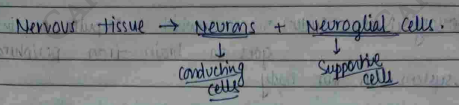 Nervous tissue → Neurons + Neuroglial cells.
↓ ↓
Conducting Supportive
cells cells